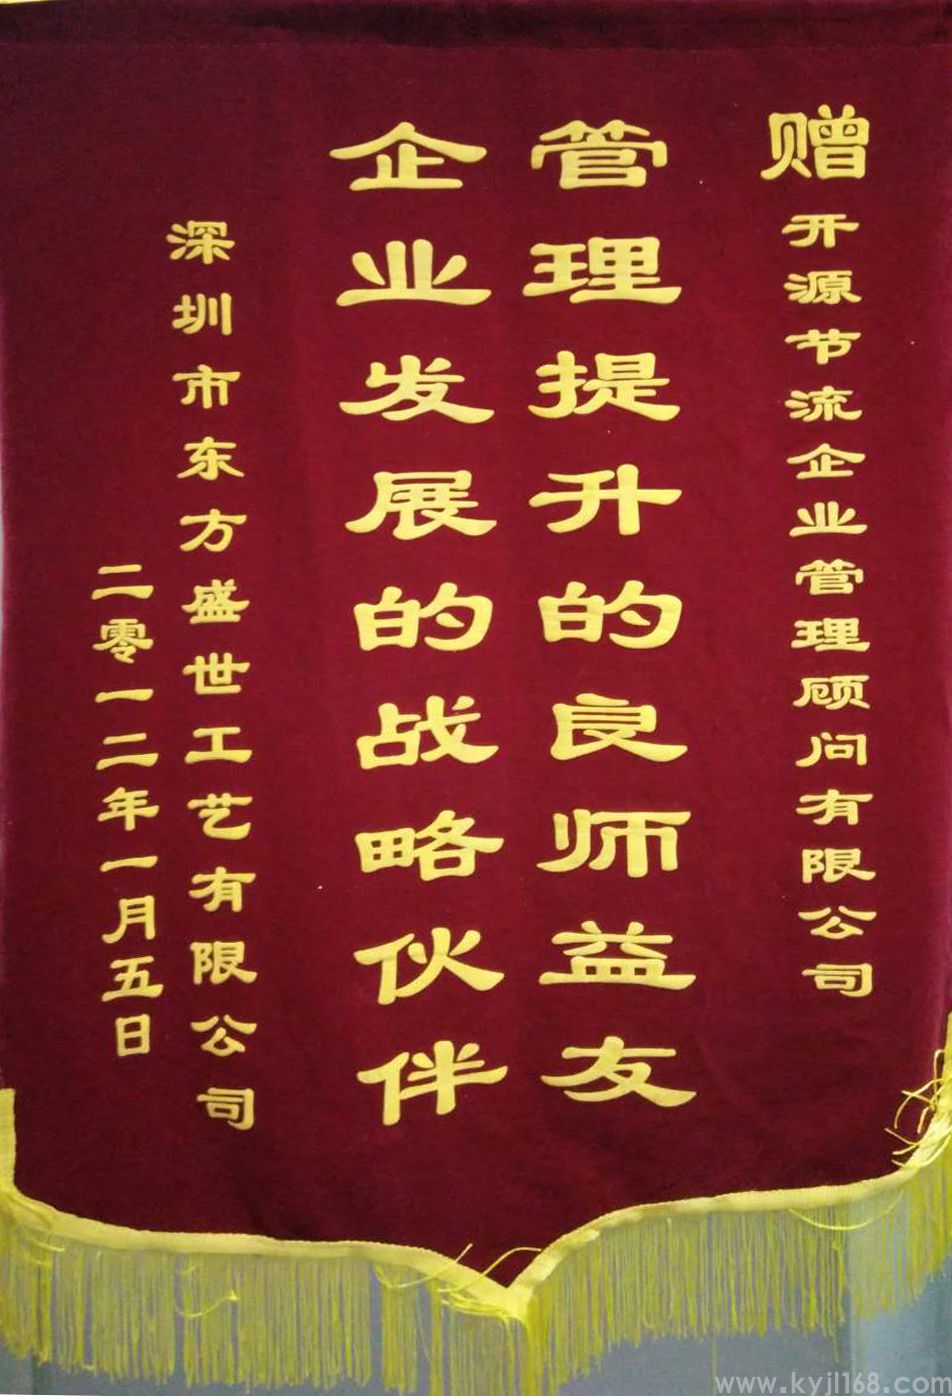 赠开源节流企业管理顾问有限公司
管理提升的良师益友
企业发展的战略伙伴
深圳市东方盛世工艺有限公司
二零一二年一月五日
www.kyjl168.com